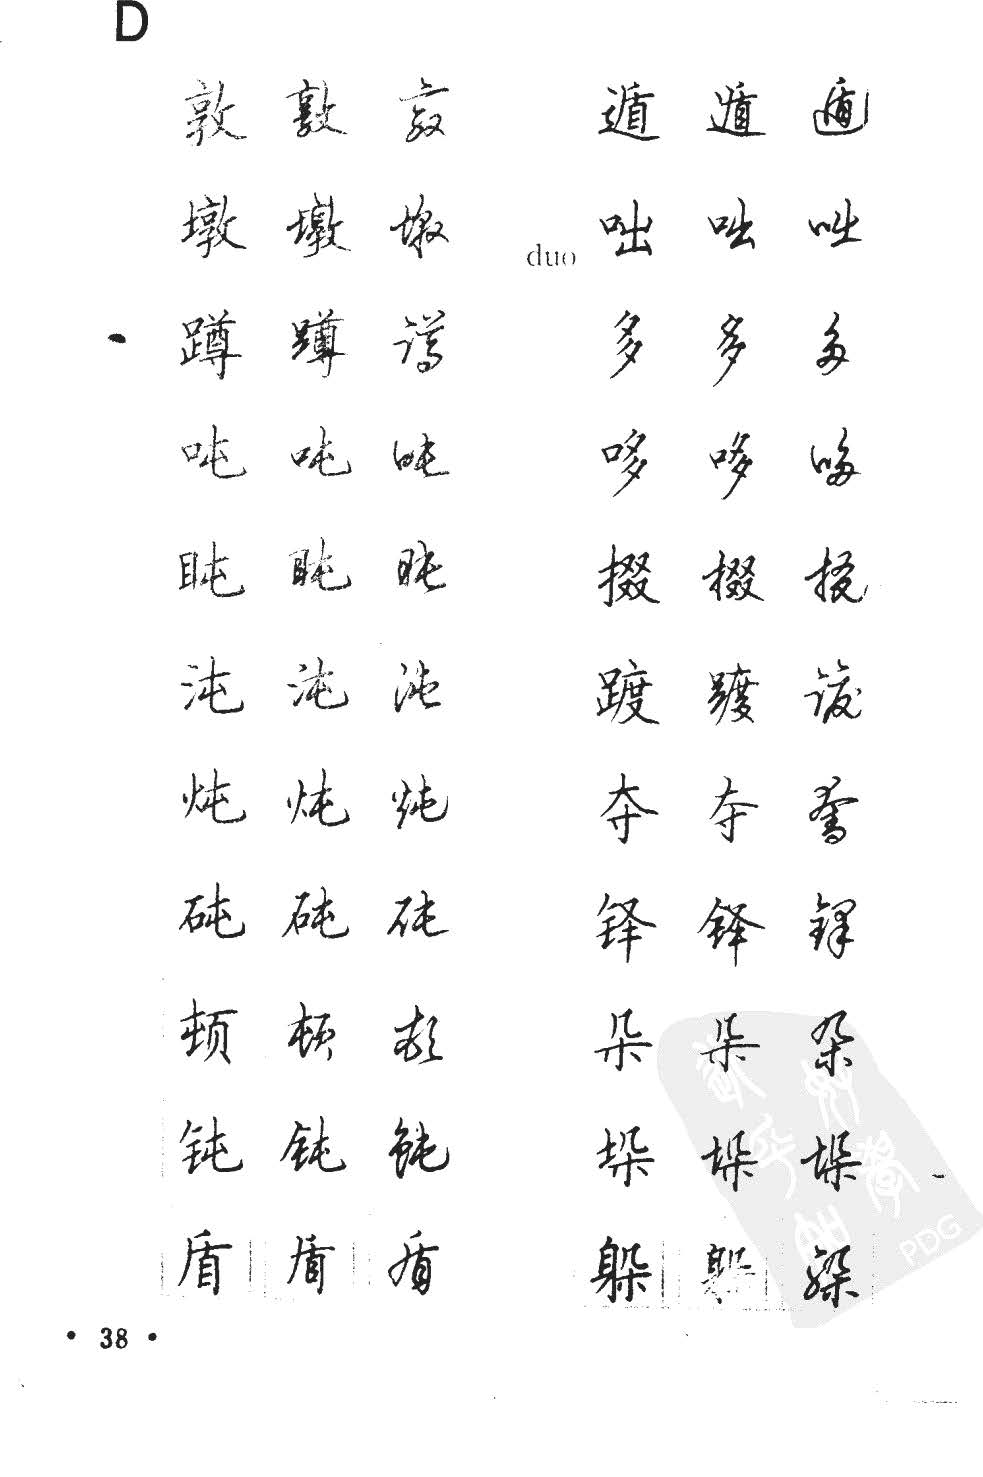 D
敦 敦 敦 遁 遁 遁
墩 墩 墩 duo 咄 咄 咄
蹲 蹲 蹲 多 多 多
吨 吨 吨 哆 哆 哆
盹 盹 盹 掇 掇 掇
沌 沌 沌 踱 踱 踱
炖 炖 炖 夺 夺 奪
砘 砘 砘 铎 铎 铎
顿 顿 顿 朵 朵 朵
钝 钝 钝 垛 垛 垛
盾 盾 盾 躲 躲 躲
PDG
• 38 •